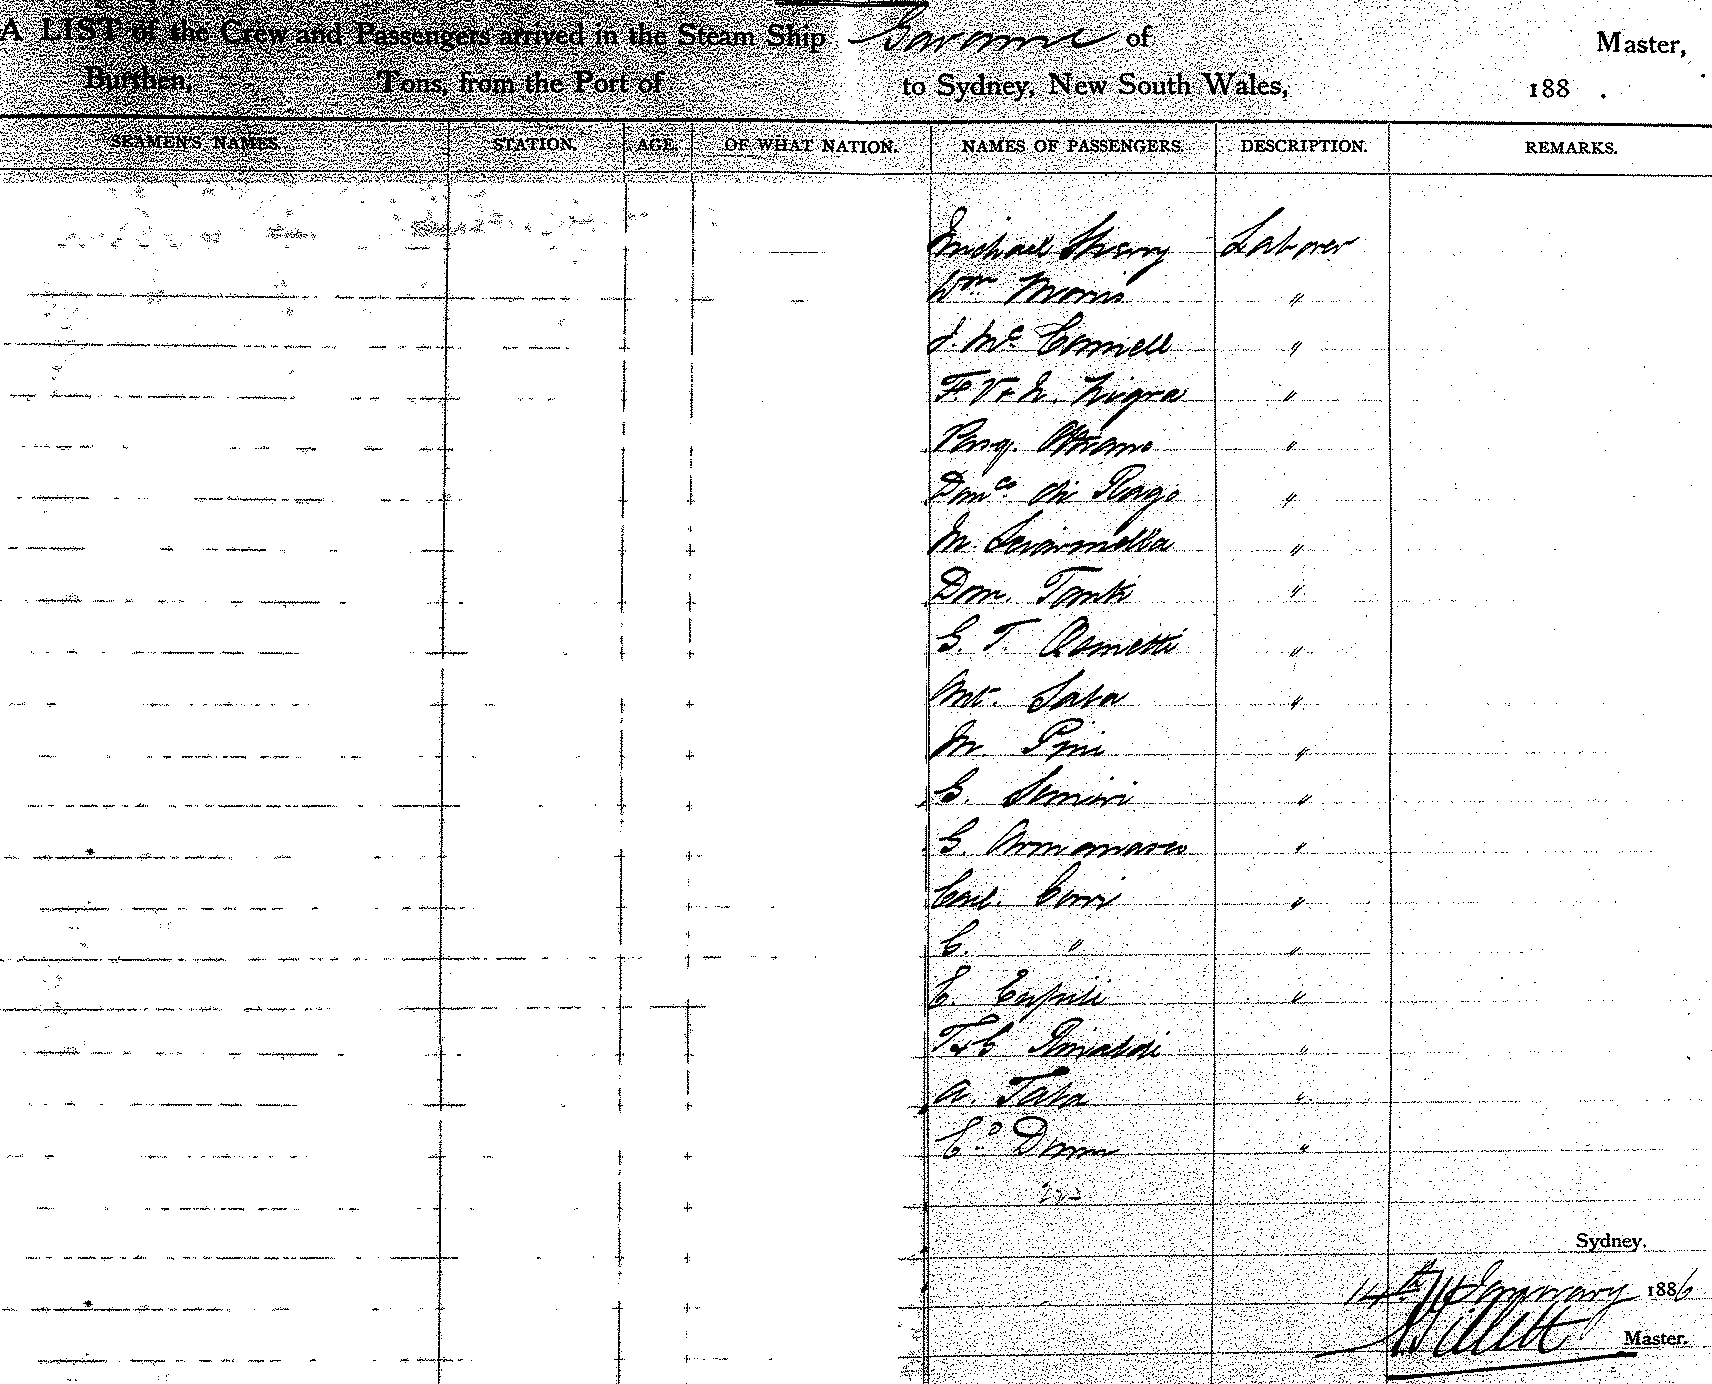 A LIST of the Crew and Passengers arrived in the Steam Ship Garonne of Master,
Burthen, Tons, from the Port of to Sydney, New South Wales, 188 .
SEAMEN'S NAMES. STATION. AGE. OF WHAT NATION. NAMES OF PASSENGERS. DESCRIPTION. REMARKS.
Michael Sherry Laborer
Wm Morris "
J. Mc Connell "
F. V & N. Nigra "
"
Domco di Rago "
M. Sciarmella "
Dom. Tomk "
G. T. "
Ant. Saba "
M. Pini "
G. Semini "
G. "
Carl. Corri "
C. " "
C. "
T & G Rinaldi "
A. Taba "
Co "
Sydney.
14th January 1886
Willett Master.